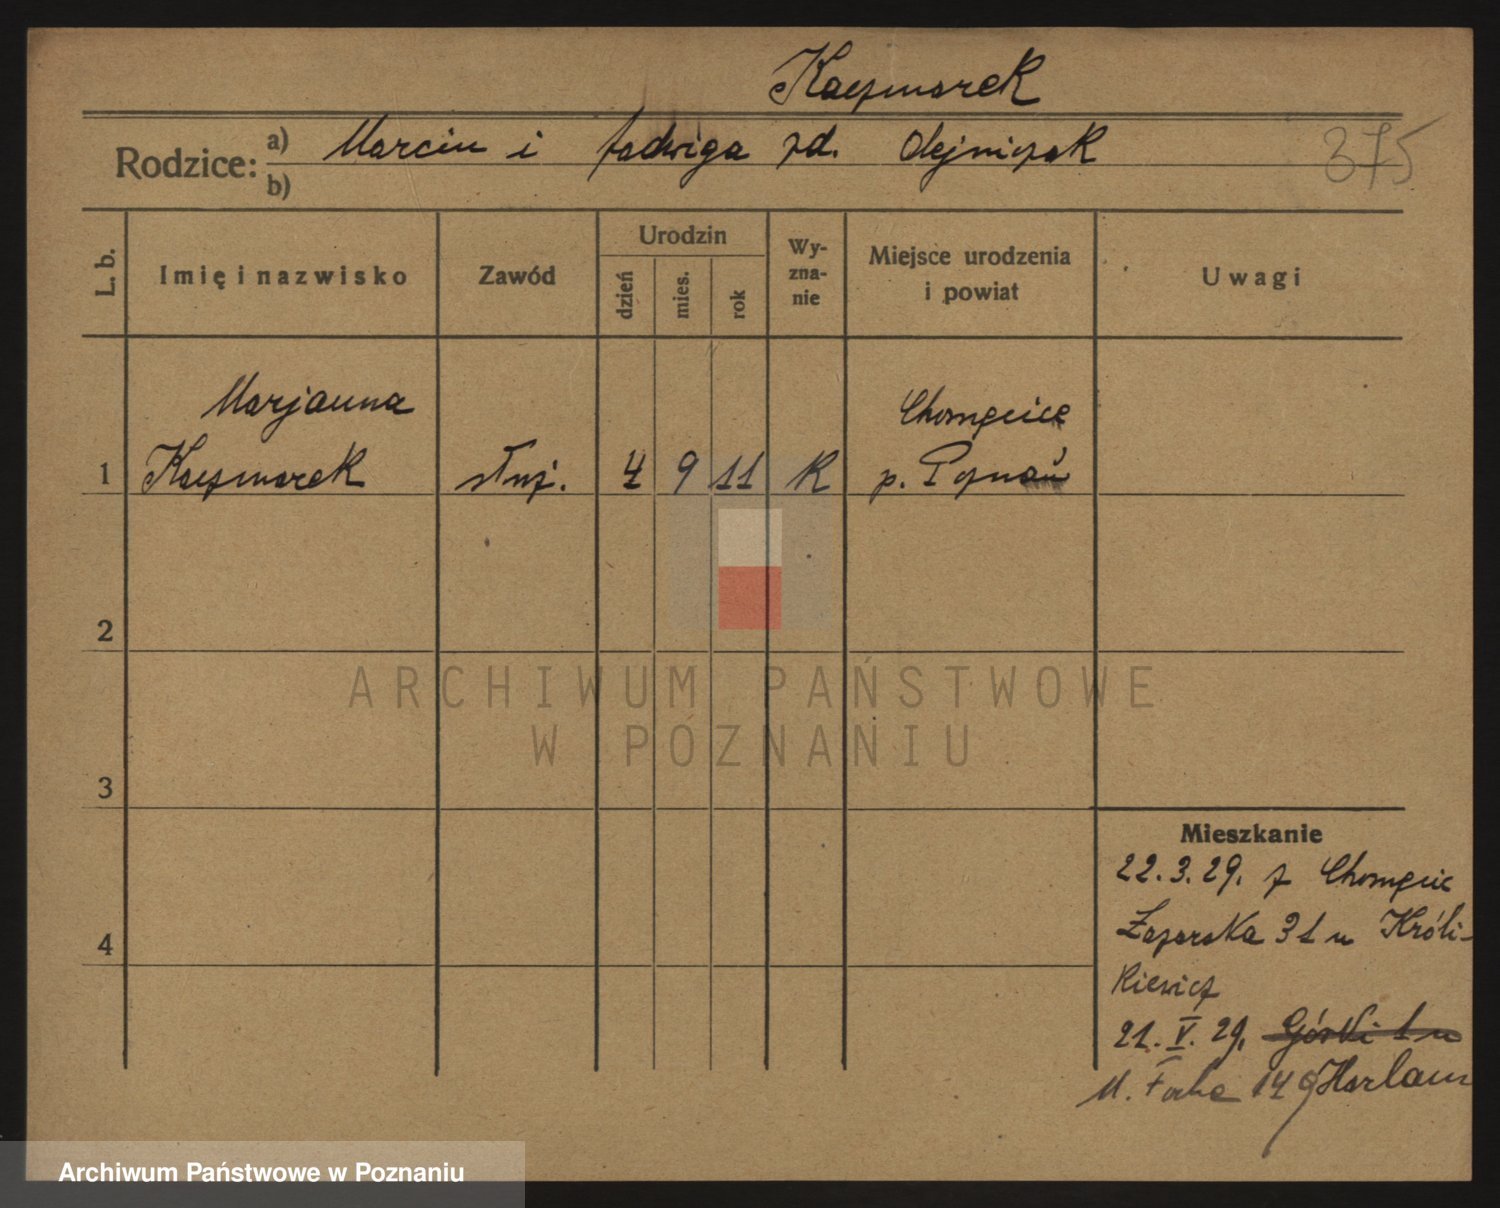 Kaczmarek
Rodzice: a) Marcin i Jadwiga zd. Olejniczak
b)
375
L. b.
Imię i nazwisko
Zawód
Urodzin
dzień
mies.
rok
Wy-
zna-
nie
Miejsce urodzenia
i powiat
Uwagi
Marjanna
Chomęcice
1 Kaczmarek służ. 4 9 11 R p. Poznań
2
3
4
ARCHIWUM PAŃSTWOWE
W POZNANIU
Mieszkanie
22.3.29. z Chomęcic
Łazarska 31 u Króli-
kiewicz
21.V.29. Górki 1 u
M. Focha 149 Harlam
Archiwum Państwowe w Poznaniu